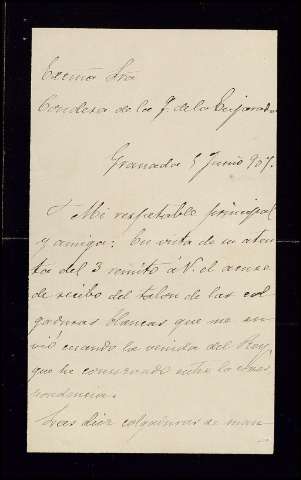 Excma Sra
Condesa de la Q. de la Enjarada
Granada 5 Junio 907.
Mi respetable principal
y amiga: En vista de su aten-
ta del 3 remito á V. el acuse
de recibo del talon de las col
gaduras blancas que me en
vió cuando la venida del Rey,
que he conservado entre la corres
pondencia.
Las diez colgaduras de man